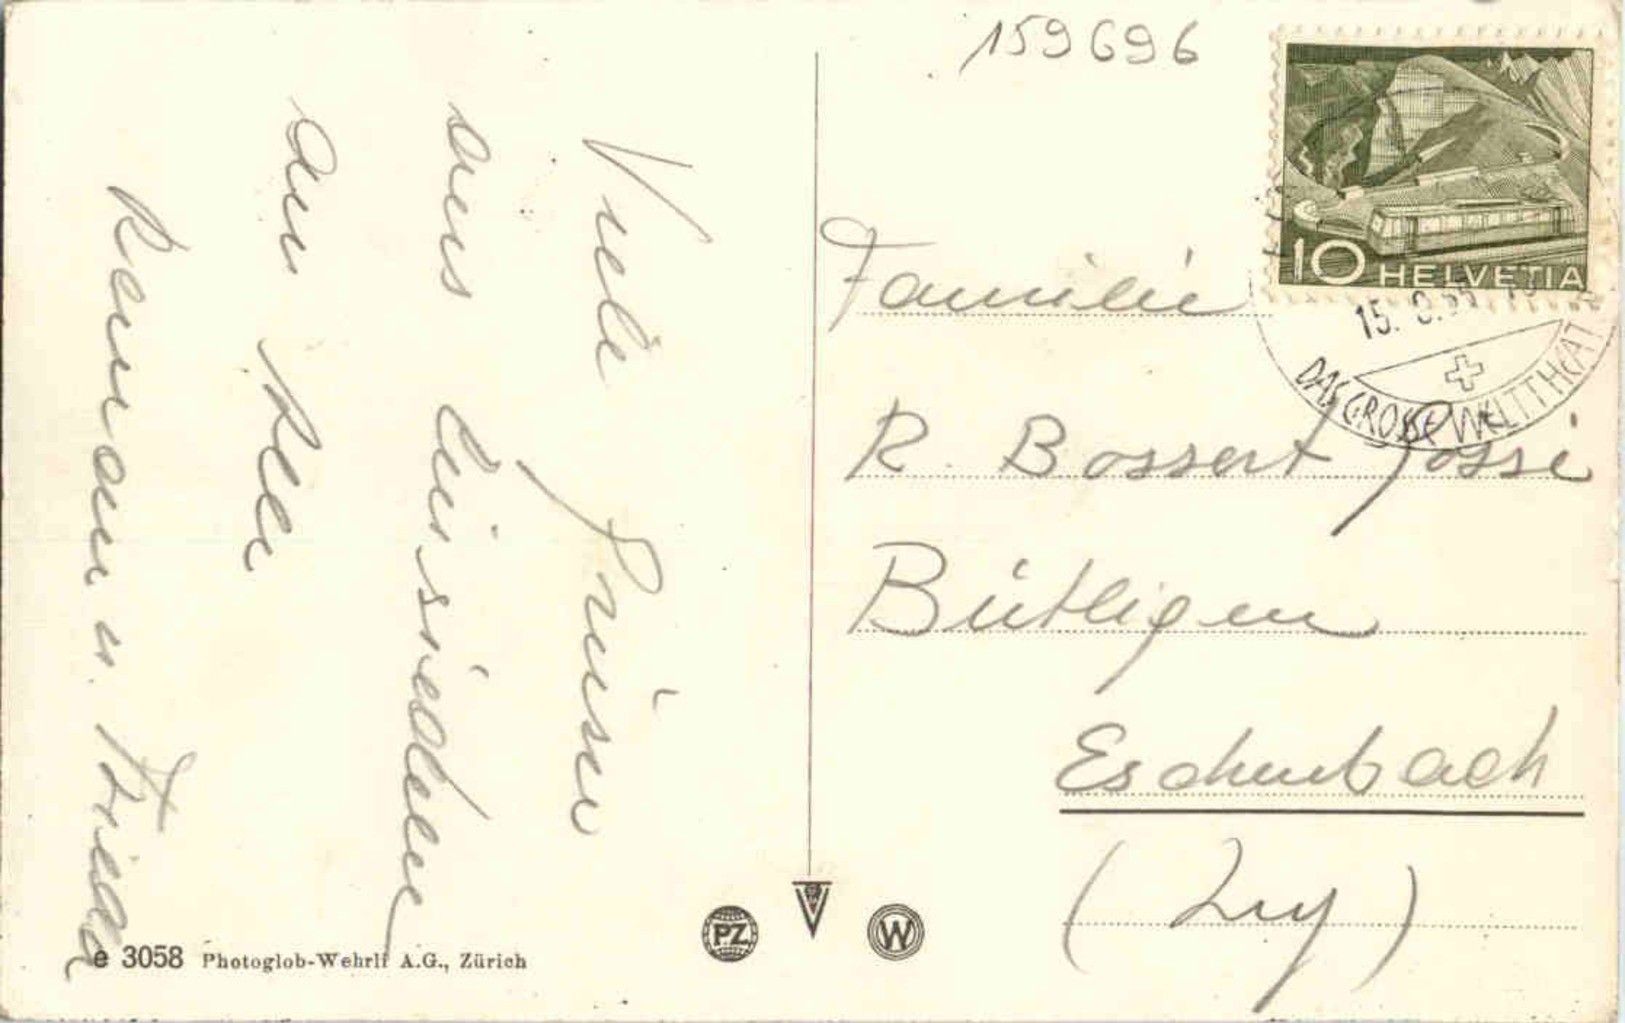 159696
10 HELVETIA
15.
DAS GROSSE WELTTHEAT
Viele Grüsse
aus Einsiedeln
an Alle
u.
Familie
R. Bossert Jossi
Bütligen
Eschenbach
(Luz)
PZ
W
e 3058 Photoglob-Wehrli A.G., Zürich